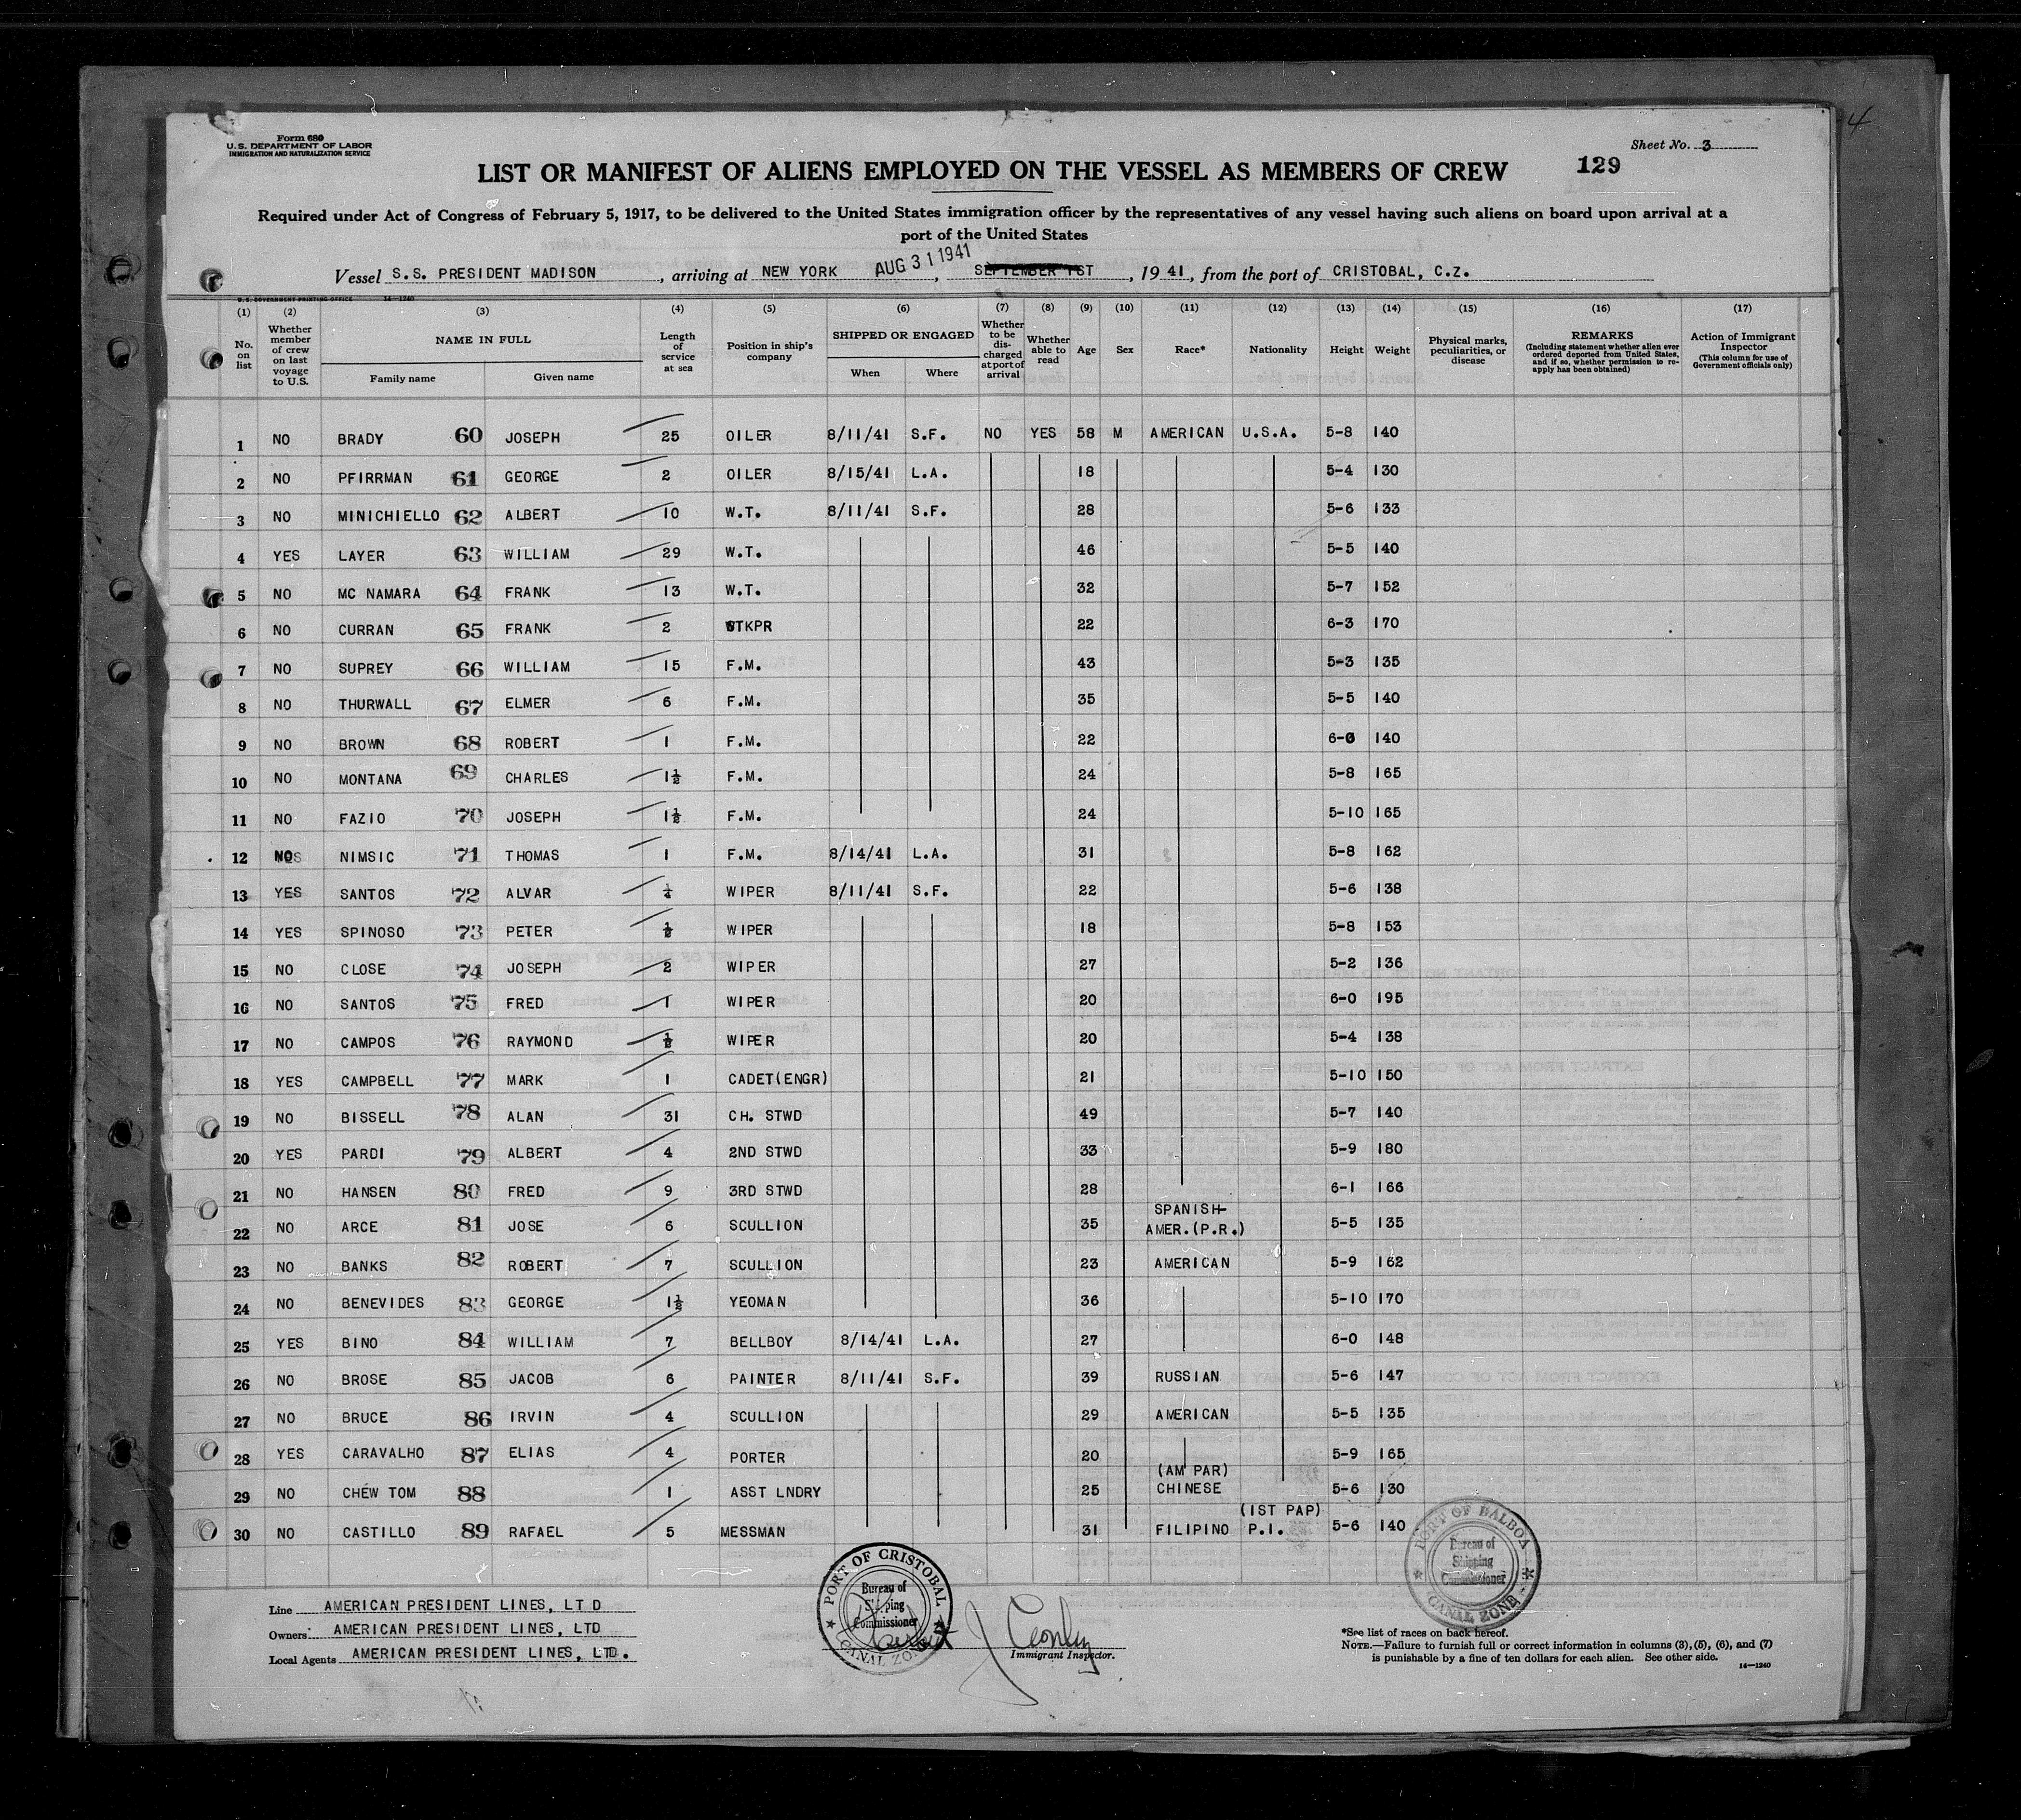 Form 680
U.S. DEPARTMENT OF LABOR
IMMIGRATION AND NATURALIZATION SERVICE
Sheet No. 3
LIST OR MANIFEST OF ALIENS EMPLOYED ON THE VESSEL AS MEMBERS OF CREW 129
Required under Act of Congress of February 5, 1917, to be delivered to the United States immigration officer by the representatives of any vessel having such aliens on board upon arrival at a
port of the United States
Vessel S.S. PRESIDENT MADISON, arriving at NEW YORK AUG 31 1941, SEPTEMBER 1ST, 1941, from the port of CRISTOBAL, C.Z.
U.S. GOVERNMENT PRINTING OFFICE 14-1240
(1) (2) (3) (4) (5) (6) (7) (8) (9) (10) (11) (12) (13) (14) (15) (16) (17)
No. on list
Whether member of crew on last voyage to U.S.
NAME IN FULL
Family name Given name
Length of service at sea
Position in ship's company
SHIPPED OR ENGAGED
When Where
Whether to be discharged at port of arrival
Whether able to read
Age
Sex
Race*
Nationality
Height
Weight
Physical marks, peculiarities, or disease
REMARKS
(Including statement whether alien ever ordered deported from United States, and if so, whether permission to reapply has been obtained)
Action of Immigrant Inspector
(This column for use of Government officials only)
1 NO BRADY 60 JOSEPH 25 OILER 8/11/41 S.F. NO YES 58 M AMERICAN U.S.A. 5-8 140
2 NO PFIRRMAN 61 GEORGE 2 OILER 8/15/41 L.A. 18 5-4 130
3 NO MINICHIELLO 62 ALBERT 10 W.T. 8/11/41 S.F. 28 5-6 133
4 YES LAYER 63 WILLIAM 29 W.T. 46 5-5 140
5 NO MC NAMARA 64 FRANK 13 W.T. 32 5-7 152
6 NO CURRAN 65 FRANK 2 STKPR 22 6-3 170
7 NO SUPREY 66 WILLIAM 15 F.M. 43 5-3 135
8 NO THURWALL 67 ELMER 6 F.M. 35 5-5 140
9 NO BROWN 68 ROBERT 1 F.M. 22 6-0 140
10 NO MONTANA 69 CHARLES 1½ F.M. 24 5-8 165
11 NO FAZIO 70 JOSEPH 1½ F.M. 24 5-10 165
12 NO NIMSIC 71 THOMAS 1 F.M. 8/14/41 L.A. 31 5-8 162
13 YES SANTOS 72 ALVAR ¼ WIPER 8/11/41 S.F. 22 5-6 138
14 YES SPINOSO 73 PETER ½ WIPER 18 5-8 153
15 NO CLOSE 74 JOSEPH 2 WIPER 27 5-2 136
16 NO SANTOS 75 FRED 1 WIPER 20 6-0 195
17 NO CAMPOS 76 RAYMOND ½ WIPER 20 5-4 138
18 YES CAMPBELL 77 MARK 1 CADET(ENGR) 21 5-10 150
19 NO BISSELL 78 ALAN 31 CH. STWD 49 5-7 140
20 YES PARDI 79 ALBERT 4 2ND STWD 33 5-9 180
21 NO HANSEN 80 FRED 9 3RD STWD 28 6-1 166
22 NO ARCE 81 JOSE 6 SCULLION 35 SPANISH-AMER.(P.R.) 5-5 135
23 NO BANKS 82 ROBERT 7 SCULLION 23 AMERICAN 5-9 162
24 NO BENEVIDES 83 GEORGE 1½ YEOMAN 36 5-10 170
25 YES BINO 84 WILLIAM 7 BELLBOY 8/14/41 L.A. 27 6-0 148
26 NO BROSE 85 JACOB 6 PAINTER 8/11/41 S.F. 39 RUSSIAN 5-6 147
27 NO BRUCE 86 IRVIN 4 SCULLION 29 AMERICAN 5-5 135
28 YES CARAVALHO 87 ELIAS 4 PORTER 20 5-9 165
29 NO CHEW TOM 88 1 ASST LNDRY 25 (AM PAR) CHINESE 5-6 130
30 NO CASTILLO 89 RAFAEL 5 MESSMAN 31 FILIPINO (1ST PAP) P.I. 5-6 140
PORT OF CRISTOBAL
Bureau of
Shipping
Commissioner
CANAL ZONE
PORT OF BALBOA
Bureau of
Shipping
Commissioner
CANAL ZONE
Line AMERICAN PRESIDENT LINES, LTD
Owners AMERICAN PRESIDENT LINES, LTD
Local Agents AMERICAN PRESIDENT LINES, LTD.
Immigrant Inspector.
*See list of races on back hereof.
NOTE.—Failure to furnish full or correct information in columns (3), (5), (6), and (7)
is punishable by a fine of ten dollars for each alien. See other side.
14-1240